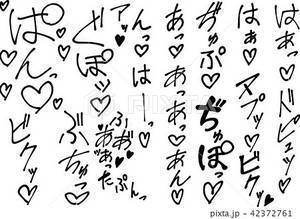 はあっ♡バビュッ♡
はぁ♡ヌプッ♡ビクッ♡
ぢゅぷ♡ぢゅぽっ♡
あっっ♡あっあっあん♡
んっ♡はーっ♡
ふぁ♡ぷんっ
ああった
ア″ッ♥
ぐぽッ♡ぶちゅっ♡
ぱんっ♡ビクッ♡
pixta.jp - 42372761